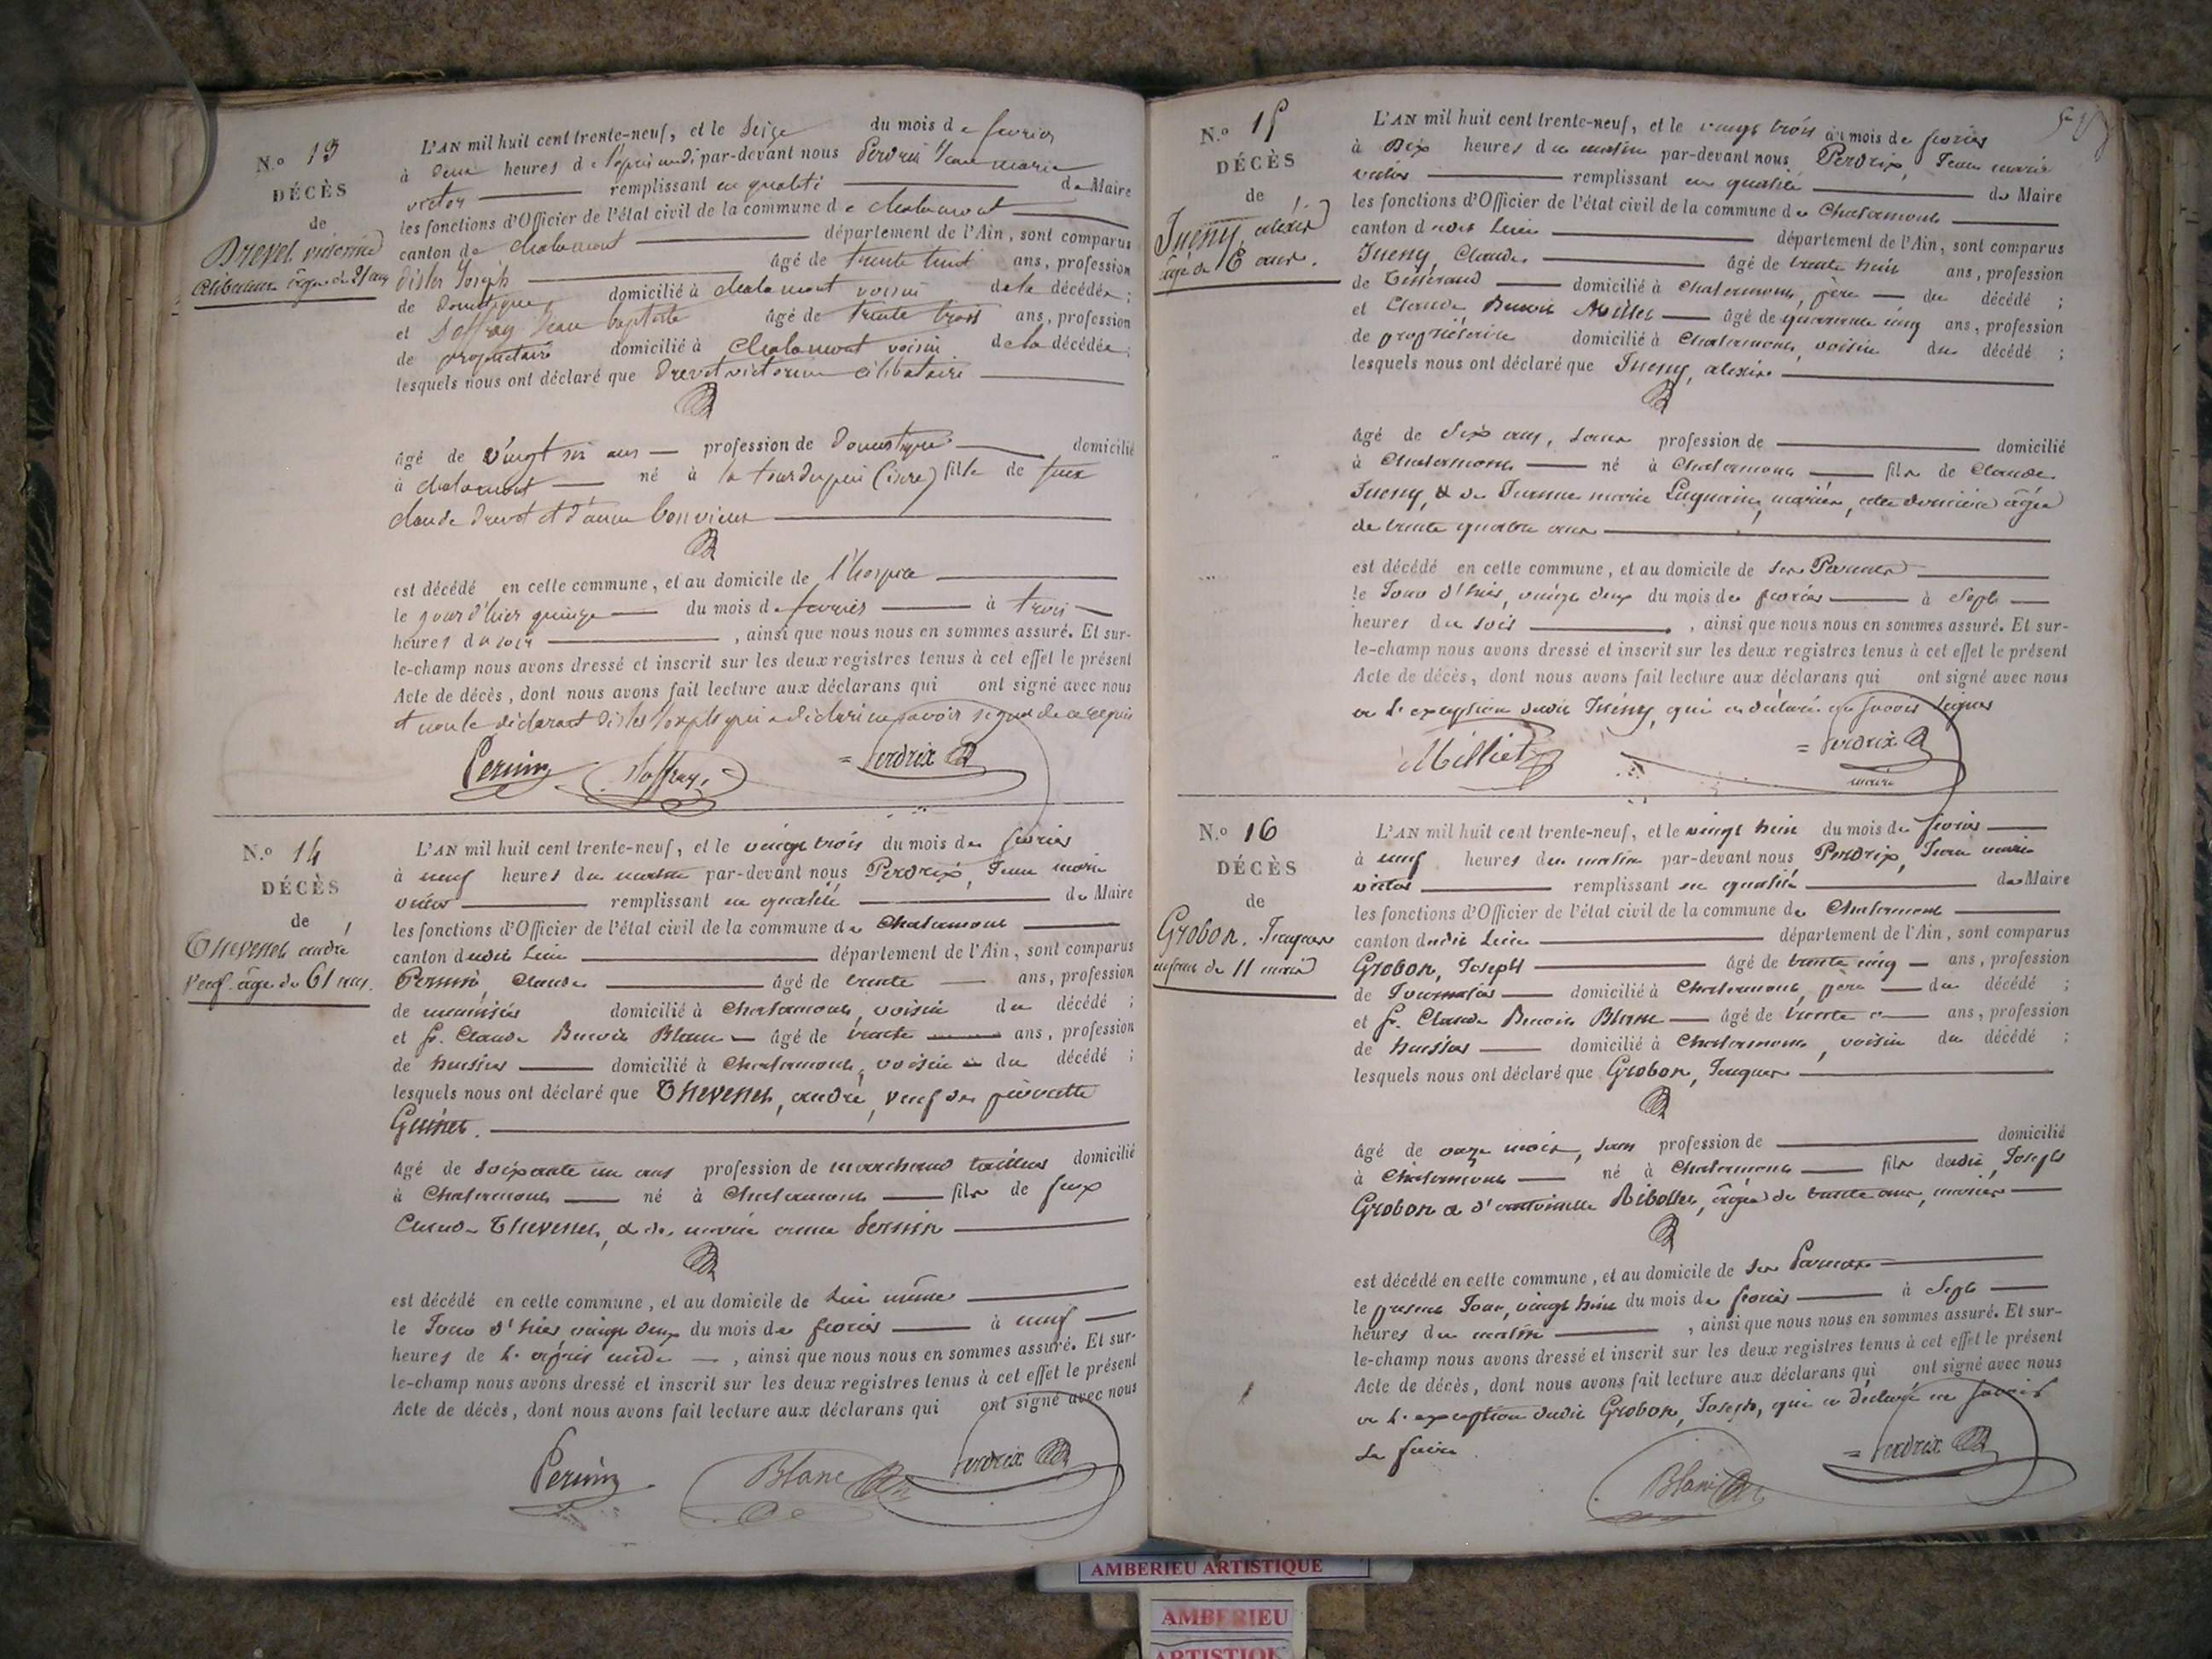 N.° 13
DÉCÈS
de
Drevet victorine
célibataire âgée de 26 ans
L'AN mil huit cent trente-neuf, et le seize du mois de fevrier
à deux heures de l'après midi par-devant nous Perdrix Jean marie
victor remplissant en qualité de Maire
les fonctions d'Officier de l'état civil de la commune de chalamont
canton de chalamont département de l'Ain, sont comparus
Joseph âgé de trente huit ans, profession
de domestique domicilié à chalamont voisin de la décédée;
et Joffray Jean baptiste âgé de trente trois ans, profession
de propriétaire domicilié à Chalamont voisin de la décédée;
lesquels nous ont déclaré que Drevet victorine célibataire
âgé de vingt six ans profession de domestique domicilié
à chalamont né à la tour du pin (isere) fille de feux
claude drevet et d'anne bonvieux
est décédé en cette commune, et au domicile de l'hospice
le jour d'hier quinze du mois de fevrier à trois
heures du soir , ainsi que nous nous en sommes assuré. Et sur-
le-champ nous avons dressé et inscrit sur les deux registres tenus à cet effet le présent
Acte de décès, dont nous avons fait lecture aux déclarans qui ont signé avec nous
et non le déclarant Joseph qui a déclaré ne savoir signer de ce requis
Pernin Joffray Perdrix
N.° 14
DÉCÈS
de
Thevenet andré
veuf âgé de 61 ans.
L'AN mil huit cent trente-neuf, et le vingt trois du mois de fevrier
à neuf heures du matin par-devant nous Perdrix, Jean marie
victor remplissant en qualité de Maire
les fonctions d'Officier de l'état civil de la commune de Chalamont
canton dudit Lieu département de l'Ain, sont comparus
Pernin, Claude âgé de trente ans, profession
de menuisier domicilié à Chalamont, voisin du décédé;
et fs. Claude Benoit Blanc âgé de trente ans, profession
de huissier domicilié à Chalamont, voisin du décédé;
lesquels nous ont déclaré que Thevenet, andré, veuf de pierrette
Guinet.
âgé de soixante un ans profession de marchand tailleur domicilié
à Chalamont né à Chalamont fils de feux
Claude Thevenet, & de marie anne Pernin
est décédé en cette commune, et au domicile de Lui même
le Jour d'hier vingt deux du mois de fevrier à neuf
heures de L'après midi , ainsi que nous nous en sommes assuré. Et sur-
le-champ nous avons dressé et inscrit sur les deux registres tenus à cet effet le présent
Acte de décès, dont nous avons fait lecture aux déclarans qui ont signé avec nous
Pernin Blanc Perdrix
N.° 15
DÉCÈS
de
Jueny, alexis
âgé de 6 ans.
L'AN mil huit cent trente-neuf, et le vingt trois du mois de fevrier
à Dix heures du matin par-devant nous Perdrix, Jean marie
victor remplissant en qualité de Maire
les fonctions d'Officier de l'état civil de la commune de Chalamont
canton dudit Lieu département de l'Ain, sont comparus
Jueny, Claude âgé de trente huit ans, profession
de Tisserand domicilié à Chalamont, père du décédé;
et Claude Benoit Milliet âgé de quarante cinq ans, profession
de propriétaire domicilié à Chalamont, voisin du décédé;
lesquels nous ont déclaré que Jueny, alexis
âgé de Six ans, sans profession de domicilié
à Chalamont né à Chalamont fils de Claude
Jueny, & de Jeanne marie mariés, cette dernière âgée
de trente quatre ans
est décédé en cette commune, et au domicile de ses Parents
le Jour d'hier, vingt deux du mois de fevrier à Sept
heures du soir , ainsi que nous nous en sommes assuré. Et sur-
le-champ nous avons dressé et inscrit sur les deux registres tenus à cet effet le présent
Acte de décès, dont nous avons fait lecture aux déclarans qui ont signé avec nous
à L'exception dudit Jueny, qui a déclaré ne savoir signer
Milliet Perdrix
maire
N.° 16
DÉCÈS
de
Grobon, Jaques
enfant de 11 mois
L'AN mil huit cent trente-neuf, et le vingt huit du mois de fevrier
à neuf heures du matin par-devant nous Perdrix, Jean marie
victor remplissant en qualité de Maire
les fonctions d'Officier de l'état civil de la commune de Chalamont
canton dudit Lieu département de l'Ain, sont comparus
Grobon, Joseph âgé de trente cinq ans, profession
de Journalier domicilié à Chalamont, père du décédé;
et fs. Claude Benoit Blanc âgé de trente ans, profession
de huissier domicilié à Chalamont, voisin du décédé;
lesquels nous ont déclaré que Grobon, Jaques
âgé de onze mois, sans profession de domicilié
à Chalamont né à Chalamont fils dudit, Joseph
Grobon & d'antoinette Ribollet, âgée de trente ans, mariés
est décédé en cette commune, et au domicile de ses Parents
le present Jour, vingt huit du mois de fevrier à Sept
heures du matin , ainsi que nous nous en sommes assuré. Et sur-
le-champ nous avons dressé et inscrit sur les deux registres tenus à cet effet le présent
Acte de décès, dont nous avons fait lecture aux déclarans qui ont signé avec nous
à L'exception dudit Grobon, Joseph, qui a déclaré ne savoir
Le faire.
Blanc Perdrix
AMBERIEU ARTISTIQUE
AMBERIEU
ARTISTIQUE